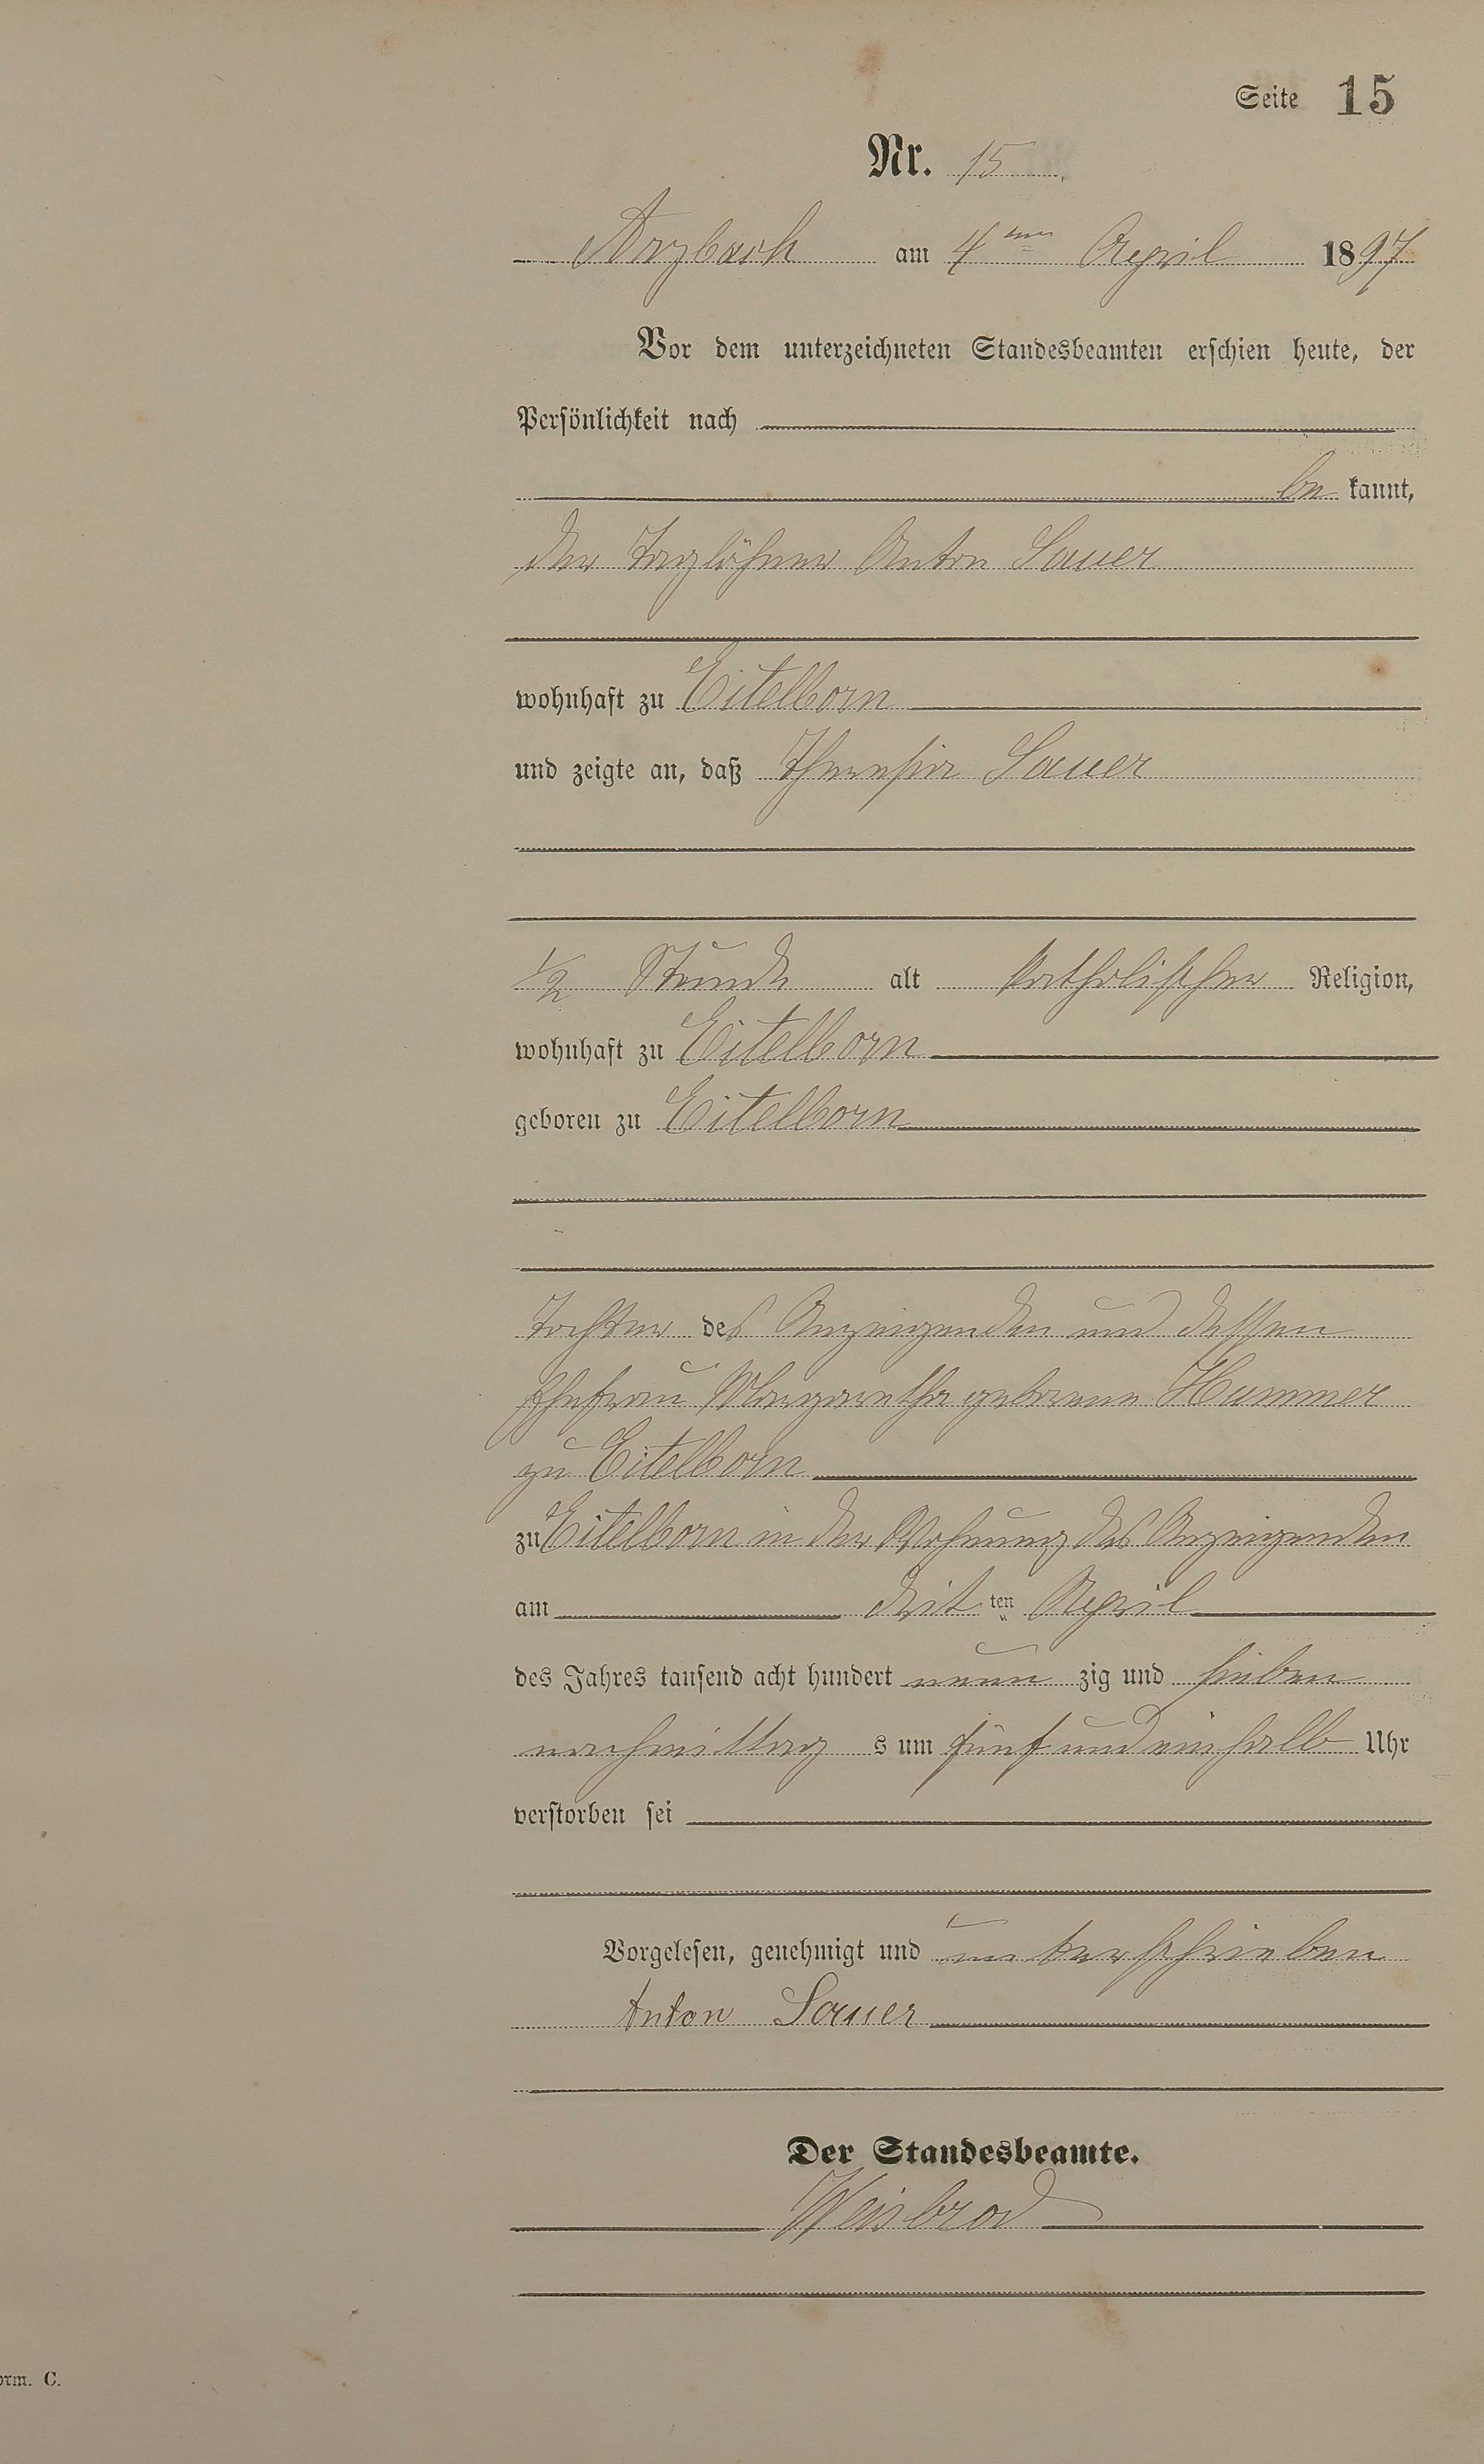 Seite 15
Nr. 15
Arzbach am 4ten April 1897
Vor dem unterzeichneten Standesbeamten erschien heute, der
Persönlichkeit nach
be kannt,
der Taglöhner Anton Sauer
wohnhaft zu Eitelborn
und zeigte an, daß Theresia Sauer
1/2 Stunde alt katholischer Religion,
wohnhaft zu Eitelborn
geboren zu Eitelborn
Tochter des Anzeigenden und dessen
Ehefrau Margaretha geborene Hummer
zu Eitelborn
zu Eitelborn in der Wohnung des Anzeigenden
am drit ten April
des Jahres tausend acht hundert neun zig und sieben
nachmittag s um fünf und ein halb Uhr
verstorben sei
Vorgelesen, genehmigt und unterschrieben
Anton Sauer
Der Standesbeamte.
Weisbrod
orm. C.